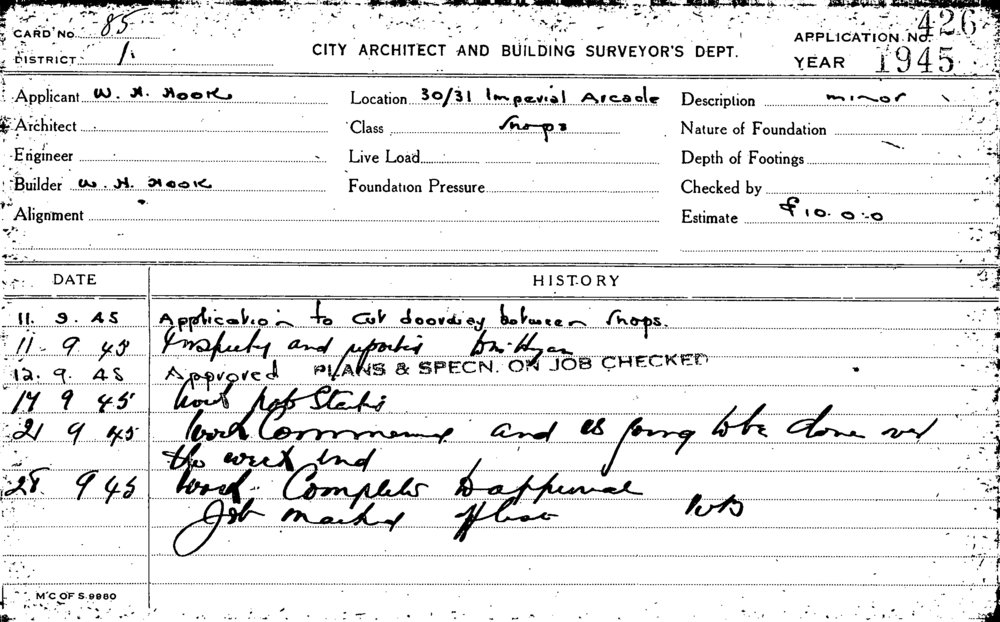 CARD No. 85
DISTRICT 1.
CITY ARCHITECT AND BUILDING SURVEYOR'S DEPT.
APPLICATION NO. 426
YEAR 1945
Applicant W. H. Hook Location 30/31 Imperial Arcade Description minor
Architect Class Shops Nature of Foundation
Engineer Live Load Depth of Footings
Builder W. H. Hook Foundation Pressure Checked by
Alignment Estimate £10.0.0
DATE HISTORY
11. 9. 45 Application to cut doorway between shops.
11. 9 45 and
12. 9. 45 Approved PLANS & SPECN. ON JOB CHECKED
17 9 45 Work not Started
21 9 45 Work Commenced and is going to be done over
the week end
28. 9 45 Work Complete to approval
Job marked off list
M'C OF S. 9980